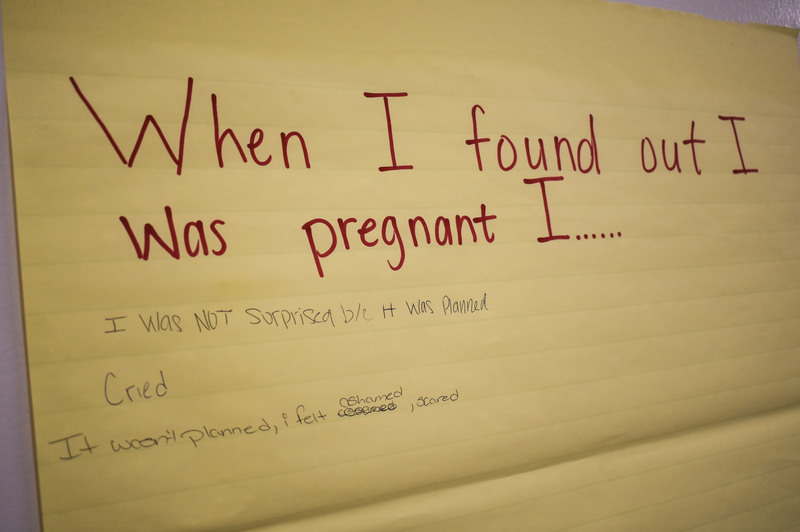 When I found out I
was pregnant I......
I was NOT surprised b/c it was planned
Cried
ashamed
It wasn't planned, i felt , scared